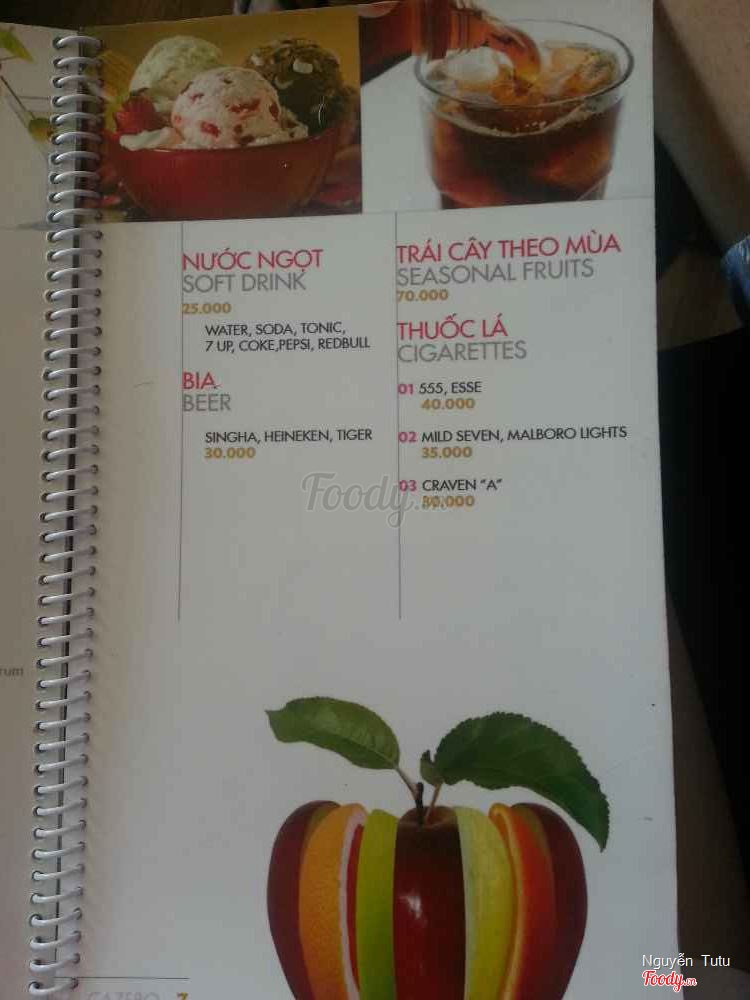 NƯỚC NGỌT
SOFT DRINK
25.000
WATER, SODA, TONIC,
7 UP, COKE,PEPSI, REDBULL
BIA
BEER
SINGHA, HEINEKEN, TIGER
30.000
TRÁI CÂY THEO MÙA
SEASONAL FRUITS
70.000
THUỐC LÁ
CIGARETTES
01 555, ESSE
40.000
02 MILD SEVEN, MALBORO LIGHTS
35.000
03 CRAVEN “A”
30.000
Foody.vn
rum
GAZEBO 7
Nguyễn Tutu
Foody.vn